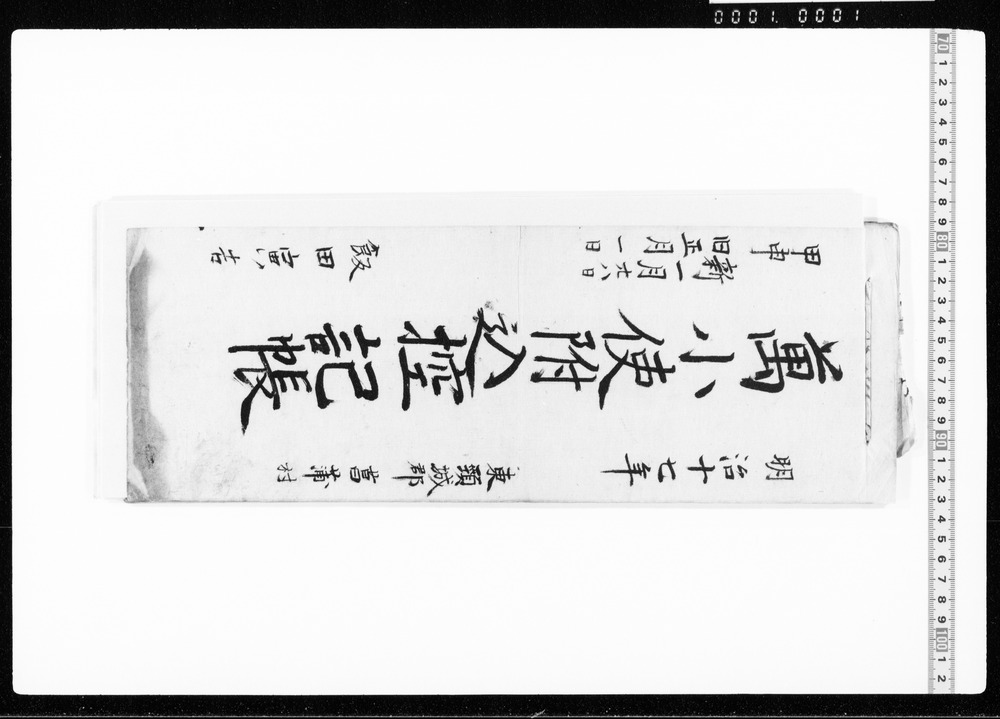 0001.0001
明治十七年
東頸城郡菖蒲村
萬小使附込控記帳
甲申
新一月廿八日
旧正月一日
飯田寅吉
70 1 2 3 4 5 6 7 8 9 80 1 2 3 4 5 6 7 8 9 90 1 2 3 4 5 6 7 8 9 100 1 2